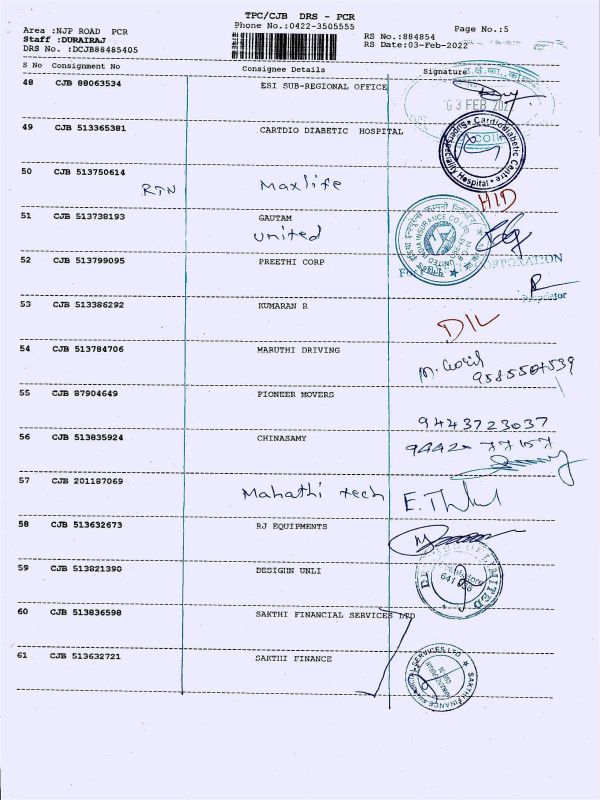 TPC/CJB DRS - PCR
Area :NJP ROAD PCR Phone No.:0422-3505555 Page No.:5
Staff :DURAIRAJ RS No.:884854
DRS No. :DCJB88485405 RS Date:03-Feb-2022
S No Consignment No Consignee Details Signature
48 CJB 88063534 ESI SUB-REGIONAL OFFICE
03 FEB 202
49 CJB 513365381 CARTDIO DIABETIC HOSPITAL
CardioDiabetic Centre Superspeciality Hospital
50 CJB 513750614
RTN Maxlife HID
51 CJB 513738193 GAUTAM
United
UNITED INDIA INSURANCE CO. LTD
52 CJB 513799095 PREETHI CORP
For CORPORATION
Proprietor
53 CJB 513386292 KUMARAN R
D/L
54 CJB 513784706 MARUTHI DRIVING
M.
55 CJB 87904649 PIONEER MOVERS
9443723037
56 CJB 513835924 CHINASAMY
57 CJB 201187069
Mahathi tech
58 CJB 513632673 RJ EQUIPMENTS
59 CJB 513821390 DESIGHN UNLI
LIMITED
60 CJB 513836598 SAKTHI FINANCIAL SERVICES LTD
61 CJB 513632721 SAKTHI FINANCE
SAKTHI FINANCE FINANCIAL SERVICES LTD